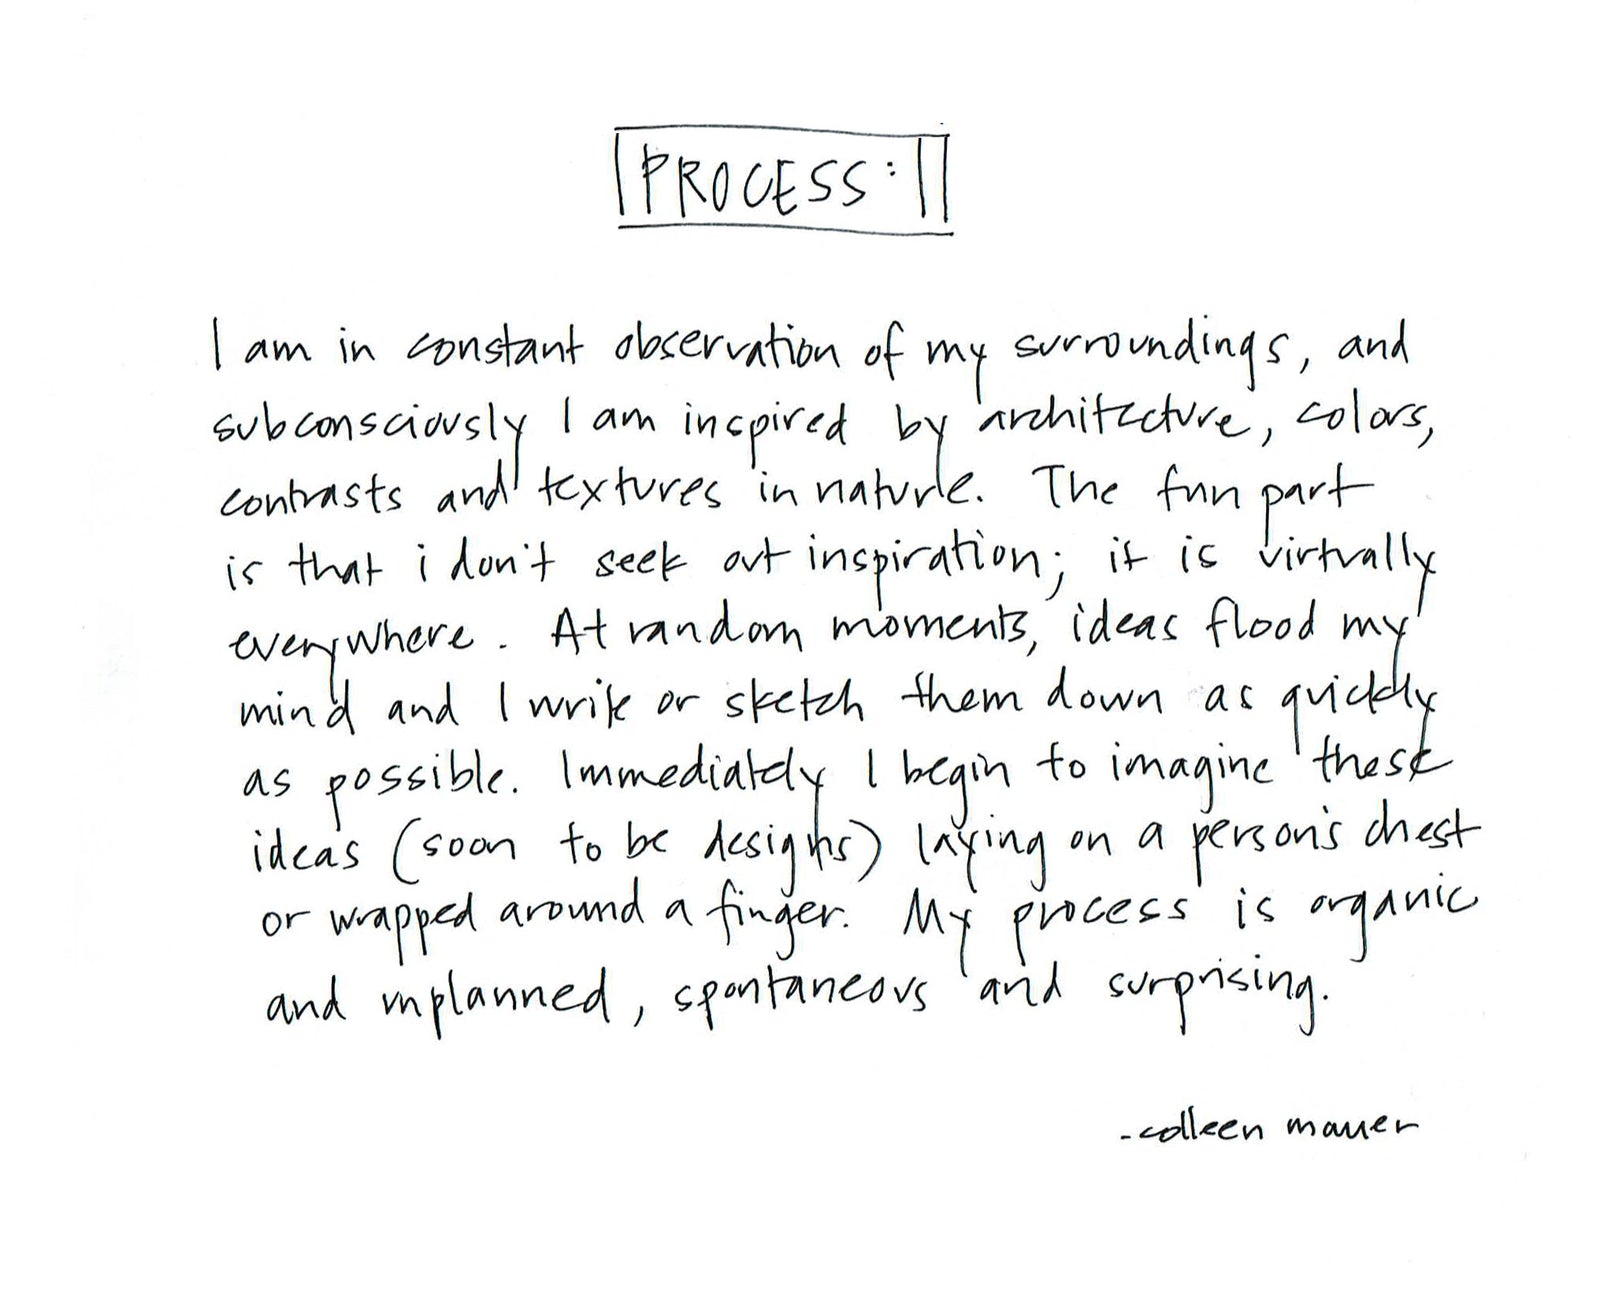 PROCESS:
I am in constant observation of my surroundings, and
subconsciously I am inspired by architecture, colors,
contrasts and textures in nature. The fun part
is that i don't seek out inspiration; it is virtually
everywhere. At random moments, ideas flood my
mind and I write or sketch them down as quickly
as possible. Immediately I begin to imagine these
ideas (soon to be designs) laying on a person's chest
or wrapped around a finger. My process is organic
and unplanned, spontaneous and surprising.
-colleen mauer